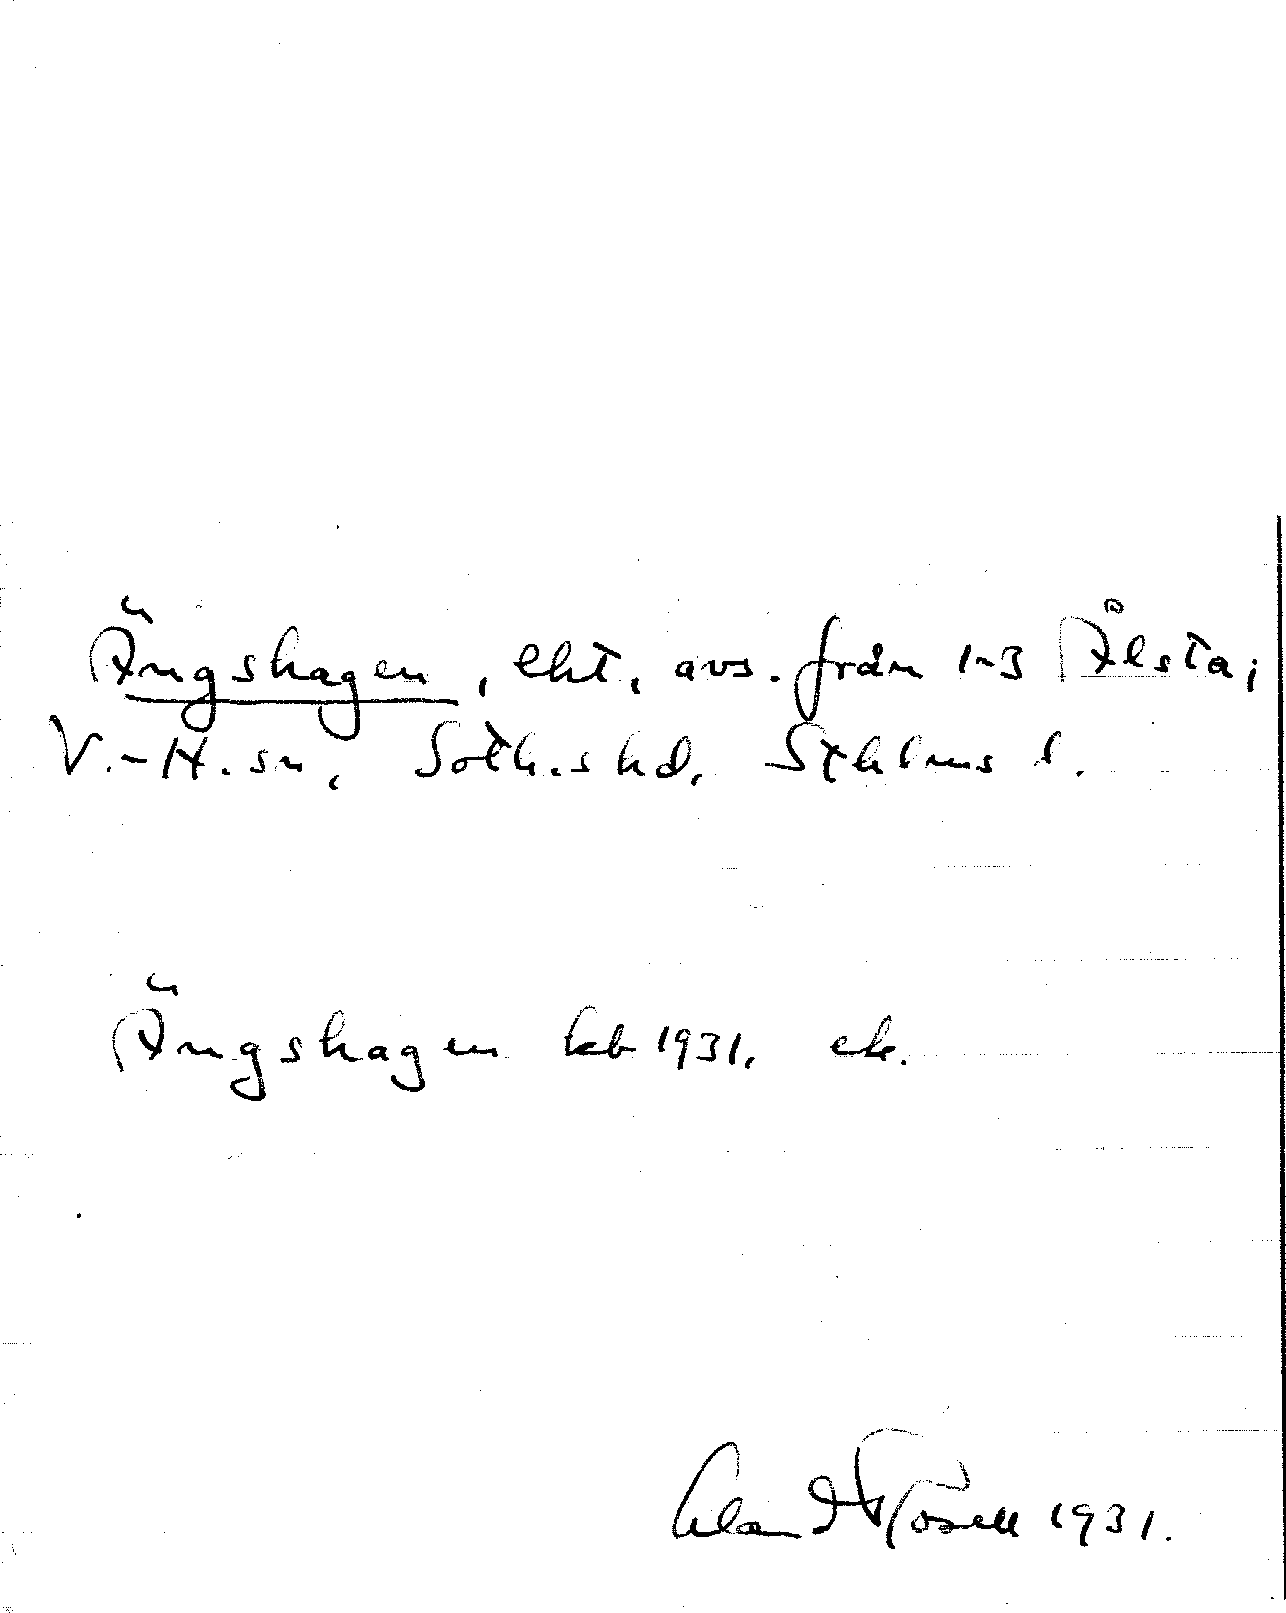 Ängshagen, lht, avs. från 1-3 Ålsta,
V.-H. sn, Soth.s hd, Sthlms l.
Ängshagen kb 1931. ek.
Rosell 1931.